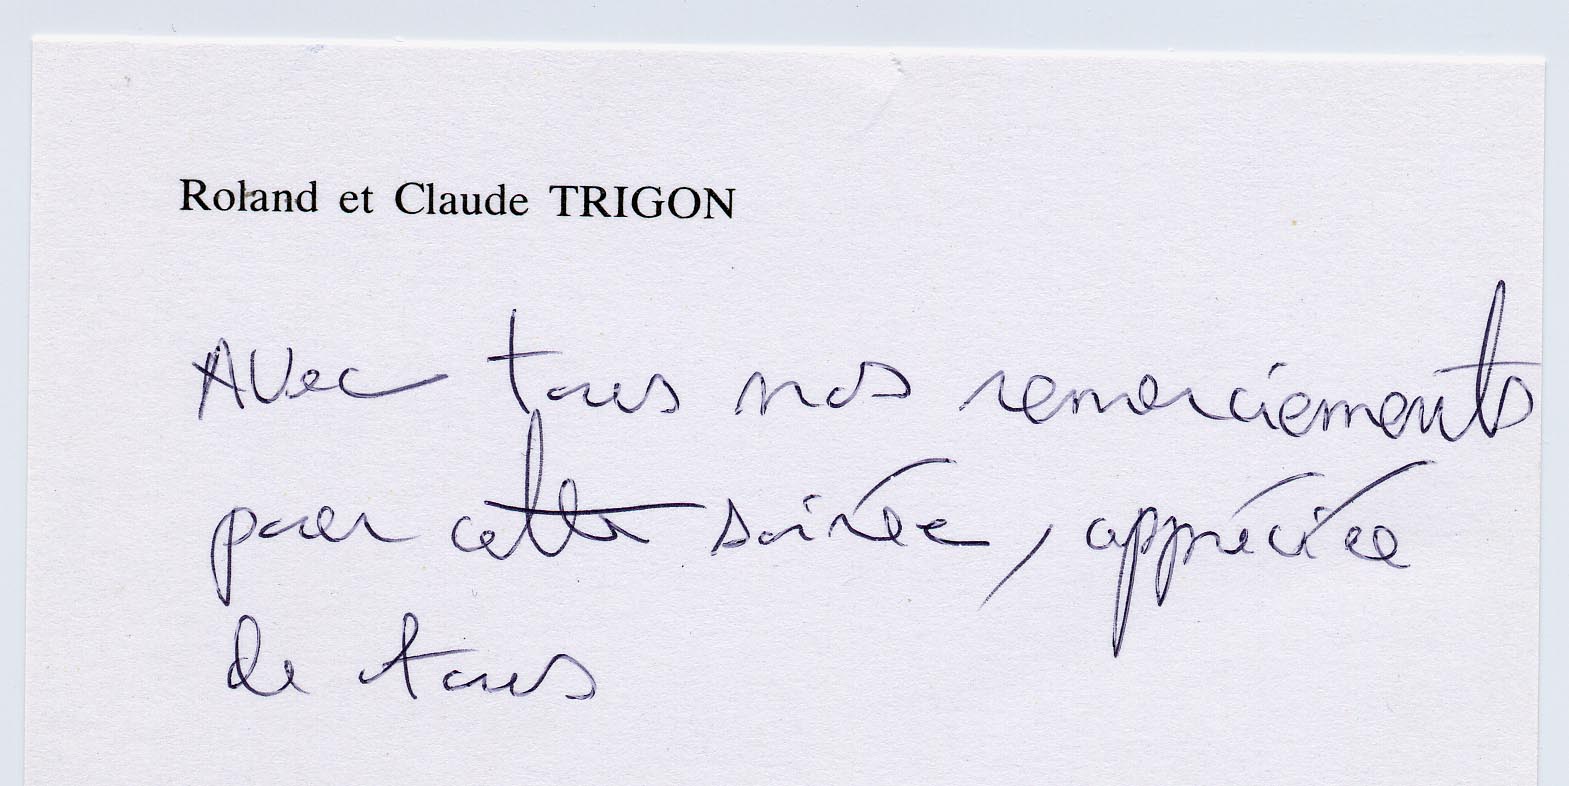 Roland et Claude TRIGON
Avec tous nos remerciements
pour cette soirée, appréciée
de tous